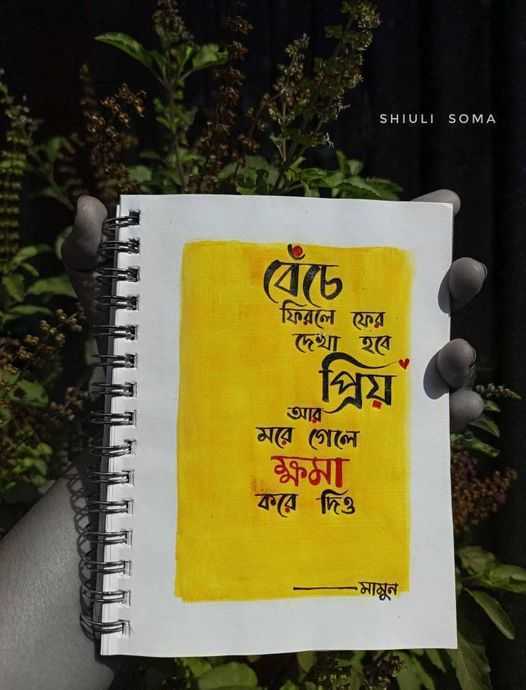 SHIULI SOMA
বেঁচে
ফিরলে ফের
দেখা হবে
প্রিয়
আর
মরে গেলে
ক্ষমা
করে দিও
—মামুন